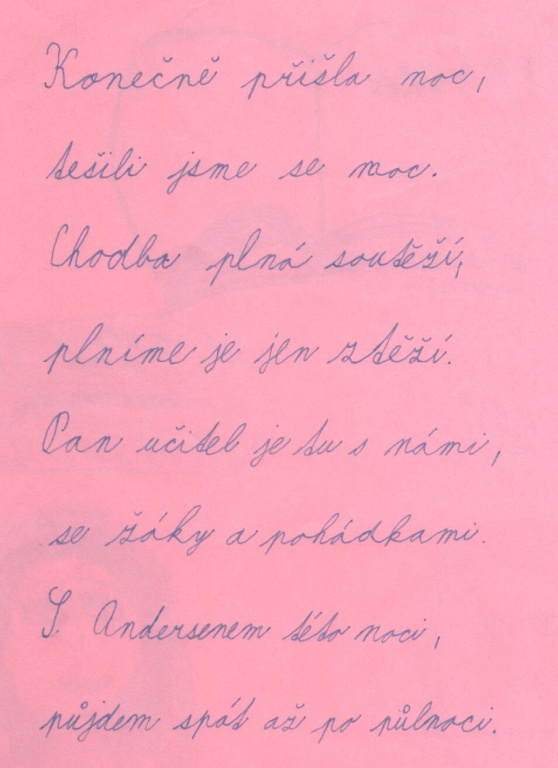 Konečně přišla noc,
tešili jsme se moc.
Chodba plná soutěží,
plníme je jen ztěží.
Pan učitel je tu s námi,
se žáky a pohádkami.
S. Andersenem této noci,
půjdem spát až po půlnoci.